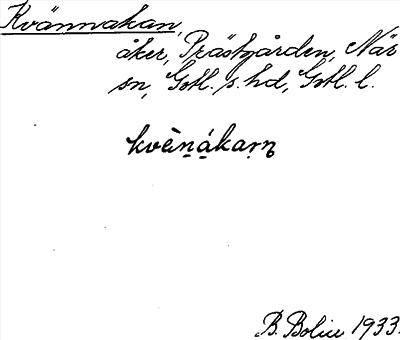 Kvännakan,
åker, Prästgården, När
sn, Gotl. s. hd, Gotl. l.
kvèn̠á̠kaṛn
B. Bolin 1933.